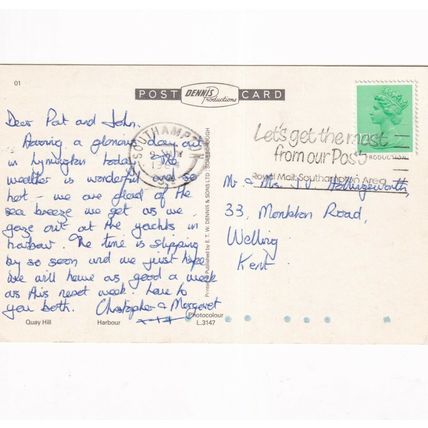 01
POST DENNIS Productions CARD
Dear Pat and John.
Having a glorious day out
in Lymington today. The
weather is wonderful and so
hot - we are glad of the
sea breeze we get as we
gaze out at the yachts in
harbour. The time is slipping
by so soon and we just hope
we will have as good a week
as this next week. Love to
you both. Christopher & Margaret
SOUTHAMPTON
Let's get the most
from our Post
Royal Mail Southampton Area
Mr & Mrs J Hollingsworth,
33, Monkton Road,
Welling
Kent.
Printed & Published by E. T. W. DENNIS & SONS LTD. SCARBOROUGH
Quay Hill Harbour
Photocolour
L.3147